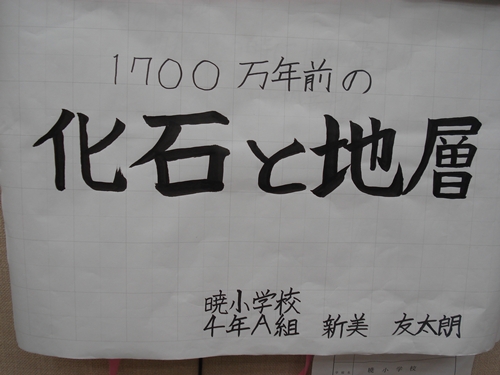 1700万年前の
化石と地層
暁小学校
4年A組 新美 友太朗
暁小学校